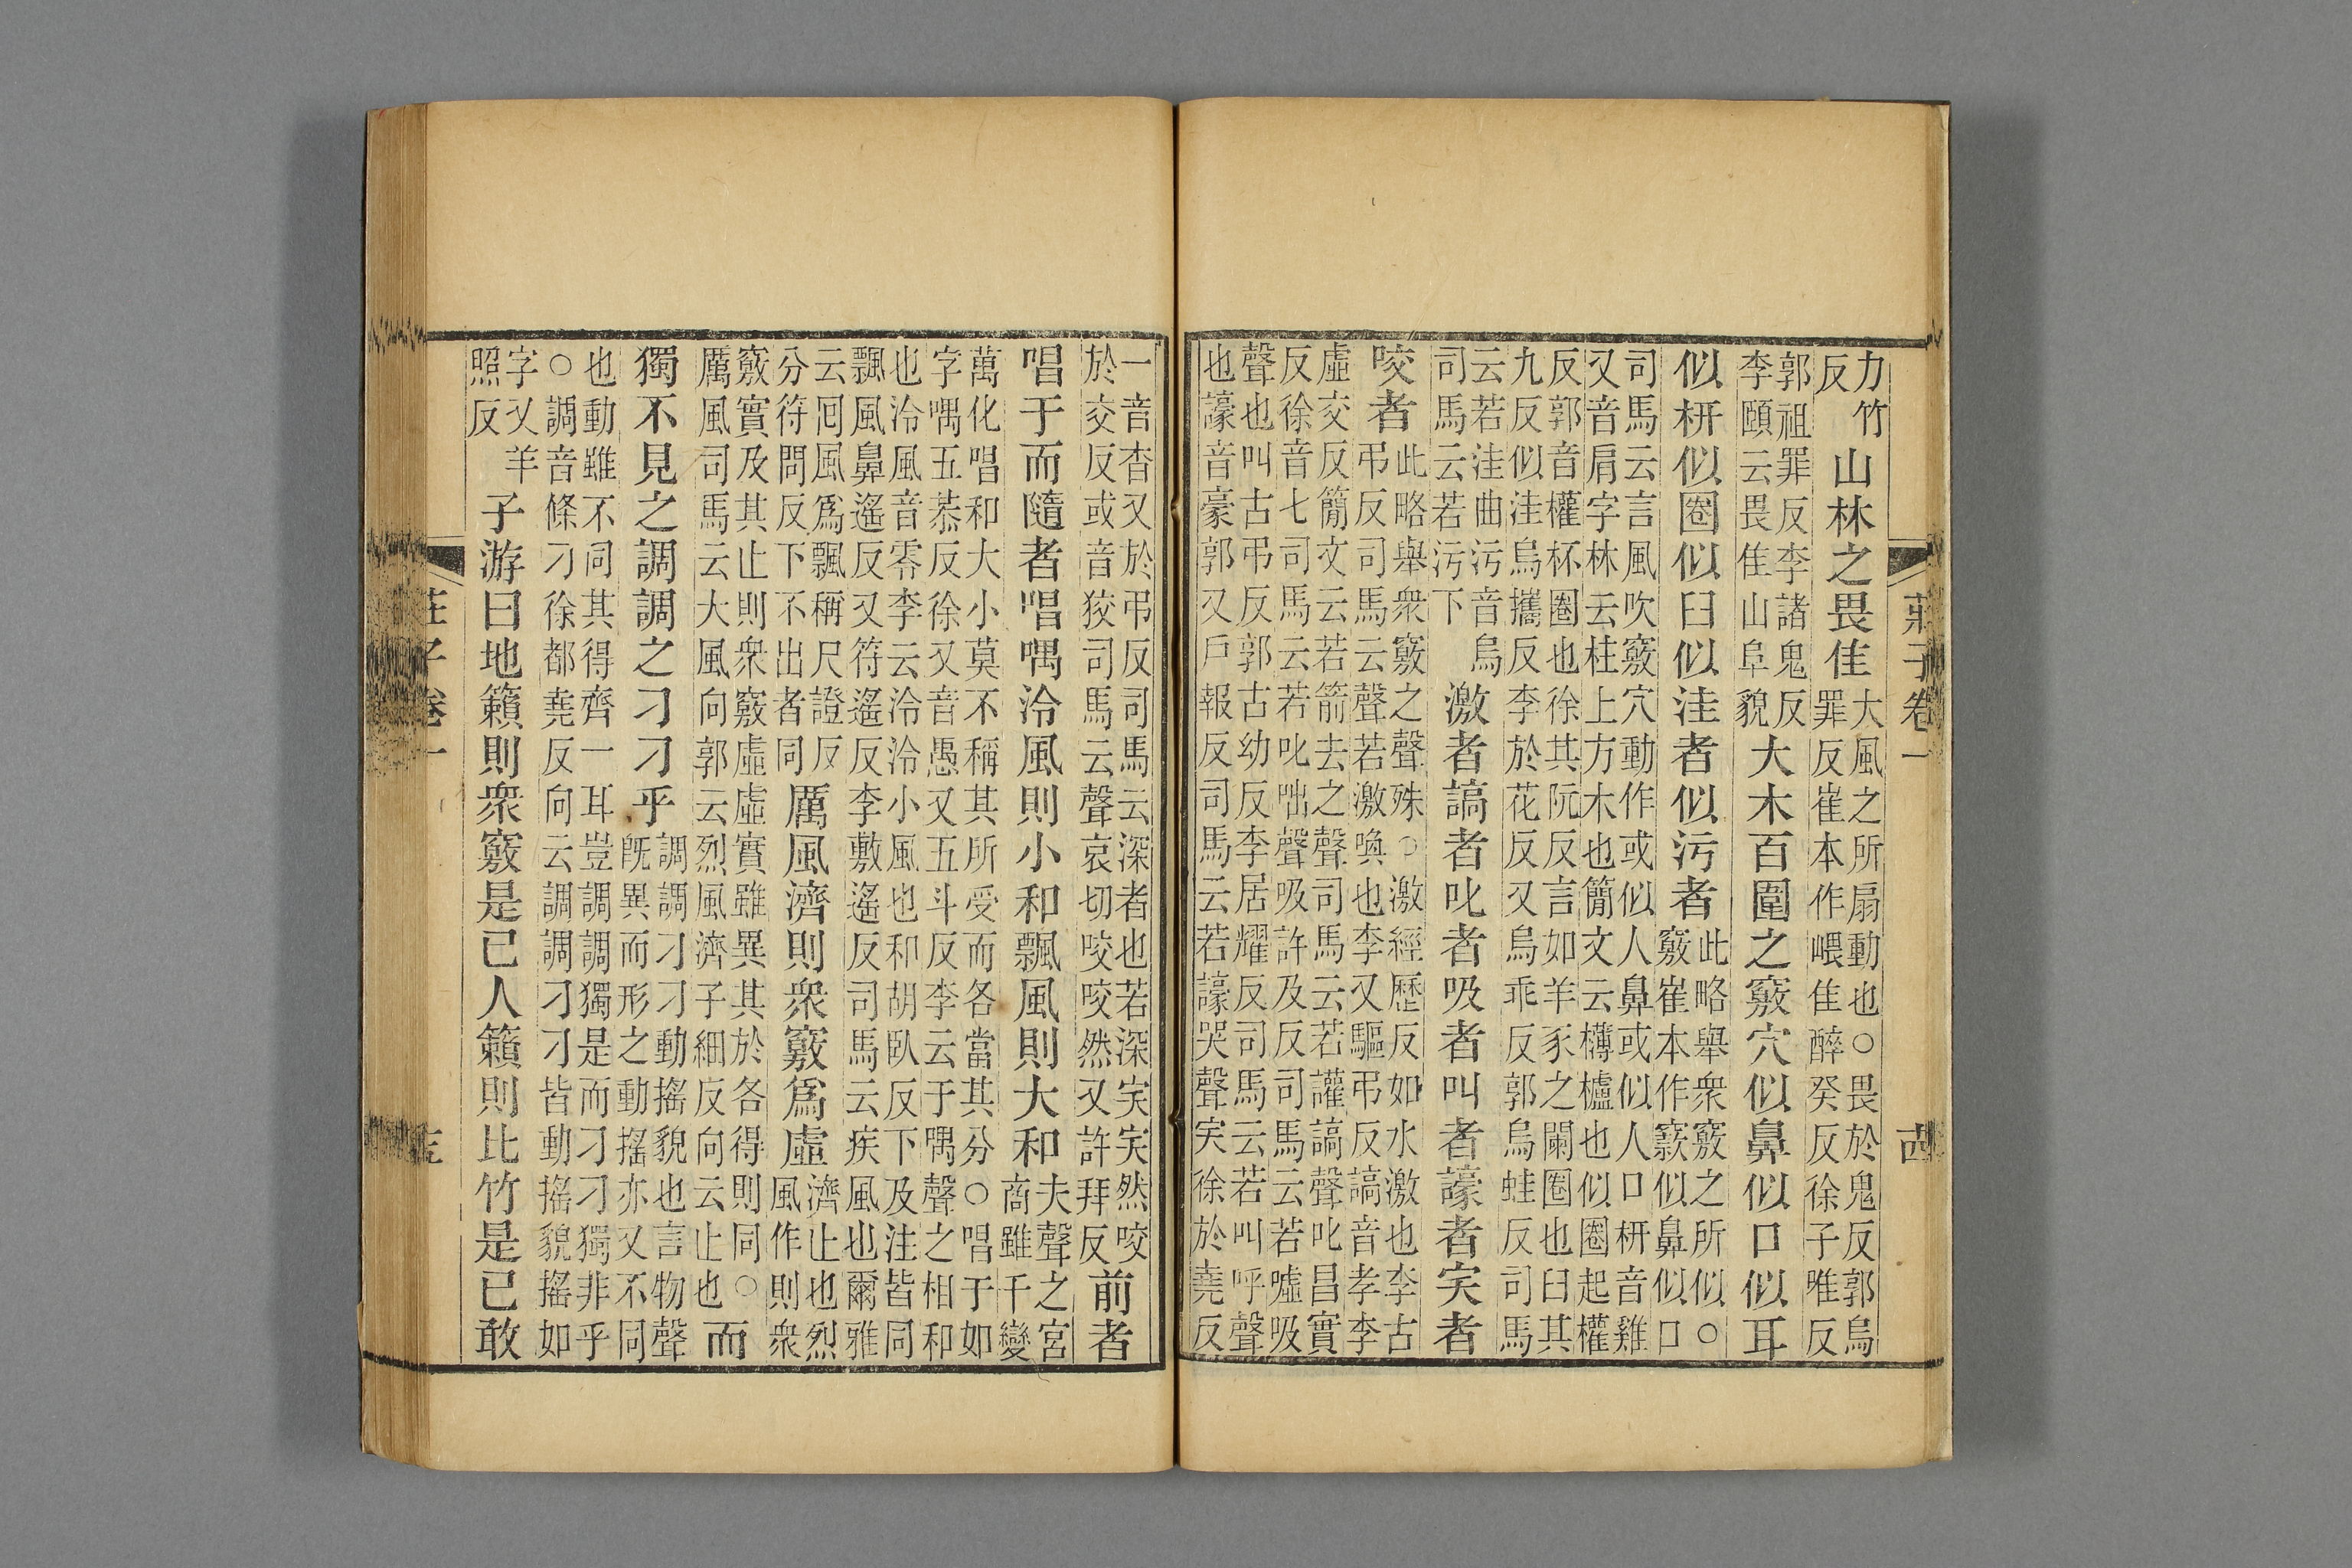 莊子卷一
力竹反山林之畏佳大風之所扇動也○畏於鬼反郭烏罪反崔本作嵔隹醉癸反徐子唯反
郭祖罪反李諸鬼反李頤云畏隹山阜貌大木百圍之竅穴似鼻似口似耳
似枅似圈似臼似洼者似污者此略舉衆竅之所似○竅崔本作窾似鼻似口
司馬云言風吹竅穴動作或似人鼻或似人口枅音雞又音肩字林云柱上方木也簡文云欂櫨也似圈起權
反郭音權杯圈也徐其阮反言如羊豕之闌圈也臼其九反似洼烏攜反李於花反又烏乖反郭烏蛙反司馬
云若洼曲污音烏司馬云若污下激者謞者叱者吸者叫者譹者宎者
咬者此略舉衆竅之聲殊○激經歷反如水激也李古弔反司馬云聲若激喚也李又驅弔反謞音孝李
虛交反簡文云若箭去之聲司馬云若讙謞聲叱昌實反徐音七司馬云若叱咄聲吸許及反司馬云若噓吸
聲也叫古弔反郭古幼反李居耀反司馬云若叫呼聲也譹音豪郭又戶報反司馬云若譹哭聲宎徐於堯反
一音杳又於弔反司馬云深者也若深宎宎然咬於交反或音狡司馬云聲哀切咬咬然又許拜反前者
唱于而隨者唱喁泠風則小和飄風則大和夫聲之宮商雖千變
萬化唱和大小莫不稱其所受而各當其分○唱于如字喁五恭反徐又音愚又五斗反李云于喁聲之相和
也泠風音零李云泠泠小風也和胡臥反下及注皆同飄風鼻遙反又符遙反李敷遙反司馬云疾風也爾雅
云回風爲飄稱尺證反分符問反下不出者同厲風濟則衆竅爲虛濟止也烈風作則衆
竅實及其止則衆竅虛虛實雖異其於各得則同○厲風司馬云大風向郭云烈風濟子細反向云止也而
獨不見之調調之刁刁乎調調刁刁動搖貌也言物聲旣異而形之動搖亦又不同
也動雖不同其得齊一耳豈調調獨是而刁刁獨非乎○調音條刁徐都堯反向云調調刁刁皆動搖貌搖如
字又羊照反子游曰地籟則衆竅是已人籟則比竹是已敢
莊子卷一